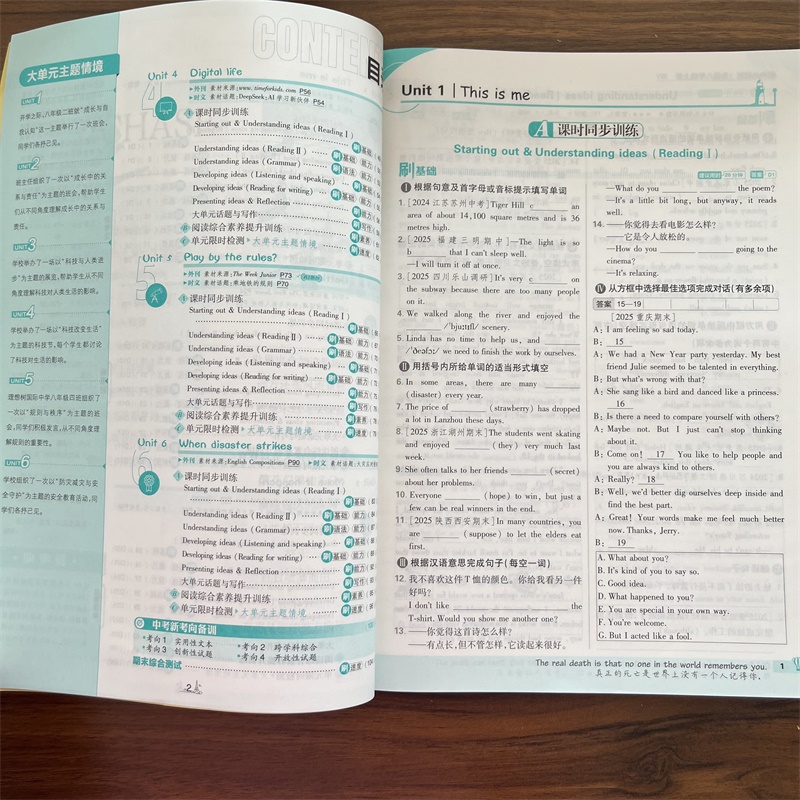 大单元主题情境
UNIT 1
开学之际,八年级二班就“成长与自
我认知”这一主题举行了一次班会,
同学们各抒己见。
UNIT 2
班主任组织了一次以“成长中的关
系与责任”为主题的班会,帮助学生
们从不同角度理解成长中的关系与
责任。
UNIT 3
学校举办了一场以“科技与人类进
步”为主题的展览,帮助学生从不同
角度理解科技对人类生活的影响。
UNIT 4
学校举办了一场以“科技改变生活”
为主题的科技节,每个学生都讨论
了科技对生活的影响。
UNIT 5
理想树国际中学八年级四班组织了
一次以“规则与秩序”为主题的班
会,同学们积极发言,从不同角度理
解规则的重要性。
UNIT 6
学校组织了一次以“防灾减灾与安
全守护”为主题的安全教育活动,同
学们各抒己见。
CONTE
目
Unit 4 Digital life
外刊 素材来源:www.timeforkids.com P56
时文 素材话题:DeepSeek:AI学习新伙伴 P54
课时同步训练
Starting out & Understanding ideas (Reading Ⅰ)
刷基础
Understanding ideas (Reading Ⅱ) 刷基础 能力
Understanding ideas (Grammar) 刷语法
Developing ideas (Listening and speaking) 刷基础
Developing ideas (Reading for writing) 刷基础
Presenting ideas & Reflection 刷能力
大单元话题与写作 刷写作
阅读综合素养提升训练 刷素养
单元限时检测 大单元主题情境 刷速度
Unit 5 Play by the rules?
外刊 素材来源:The Week Junior P73
时文 素材话题:乘地铁的规则 P70
课时同步训练
Starting out & Understanding ideas (Reading Ⅰ)
刷基础
Understanding ideas (Reading Ⅱ) 刷基础
Understanding ideas (Grammar) 刷语法
Developing ideas (Listening and speaking) 刷基础
Developing ideas (Reading for writing) 刷基础
Presenting ideas & Reflection 刷能力
大单元话题与写作 刷写作
阅读综合素养提升训练 刷素养
单元限时检测 大单元主题情境 刷速度
Unit 6 When disaster strikes
外刊 素材来源:English Compositions P90 时文 素材话题:
课时同步训练
Starting out & Understanding ideas (Reading Ⅰ)
刷基础
Understanding ideas (Reading Ⅱ) 刷基础
Understanding ideas (Grammar) 刷语法
Developing ideas (Listening and speaking) 刷基础
Developing ideas (Reading for writing) 刷基础
Presenting ideas & Reflection 刷能力
大单元话题与写作 刷写作
阅读综合素养提升训练 刷素养
单元限时检测 大单元主题情境 刷速度
中考新考向备训
考向1 实用性文本 考向2 跨学科综合
考向3 创新性试题 考向4 开放性试题
期末综合测试 刷速度
2
Unit 1 This is me
A 课时同步训练
Starting out & Understanding ideas (Reading Ⅰ)
刷基础
Ⅰ 根据句意及首字母或音标提示填写单词
1. [2024江苏苏州中考]Tiger Hill c______ an
area of about 14,100 square metres and is 36
metres high.
2. [2025 福建三明期中]—The light is so
b______ that I can't sleep well.
—I will turn it off at once.
3. [2025四川乐山调研]It's very c______ on
the subway because there are too many people
on it.
4. We walked along the river and enjoyed the
______ /'bjuːtɪfl/ scenery.
5. Linda has no time to help us, and ______
/'ðeəfɔː/ we need to finish the work by ourselves.
Ⅱ 用括号内所给单词的适当形式填空
6. In some areas, there are many ______
(disaster) every year.
7. The price of ______ (strawberry) has dropped
a lot in Lanzhou these days.
8. [2025浙江湖州期末]The students went skating
and enjoyed ______ (they) very much last
week.
9. She often talks to her friends ______ (secret)
about her problems.
10. Everyone ______ (hope) to win, but just a
few can be real winners in the end.
11. [2025陕西西安期末]In many countries, you
are ______ (suppose) to let the elders eat
first.
Ⅲ 根据汉语意思完成句子(每空一词)
12. 我不喜欢这件T恤的颜色。你给我看另一件
好吗?
I don't like ______ ______ ______ the
T-shirt. Would you show me another one?
13. ——你觉得这首诗怎么样?
——有点长,但不管怎样,它读起来很好。
—What do you ______ ______ the poem?
—It's a little bit long, but anyway, it reads
well.
14. ——你觉得去看电影怎么样?
——它是令人放松的。
—How do you ______ ______ going to the
cinema?
—It's relaxing.
Ⅳ 从方框中选择最佳选项完成对话(有多余项)
答案 15—19
[2025重庆期末]
A: I am feeling so sad today.
B: 15
A: We had a New Year party yesterday. My best
friend Julie seemed to be talented in everything.
B: But what's wrong with that?
A: She sang like a bird and danced like a princess.
16
B: Is there a need to compare yourself with others?
A: Maybe not. But I just can't stop thinking
about it.
B: Come on! 17 You like to help people and
you are always kind to others.
A: Really? 18
B: Well, we'd better dig ourselves deep inside and
find the best part.
A: Great! Your words make me feel much better
now. Thanks, Jerry.
B: 19
A. What about you?
B. It's kind of you to say so.
C. Good idea.
D. What happened to you?
E. You are special in your own way.
F. You're welcome.
G. But I acted like a fool.
The real death is that no one in the world remembers you.
真正的死亡是世界上没有一个人记得你。
1